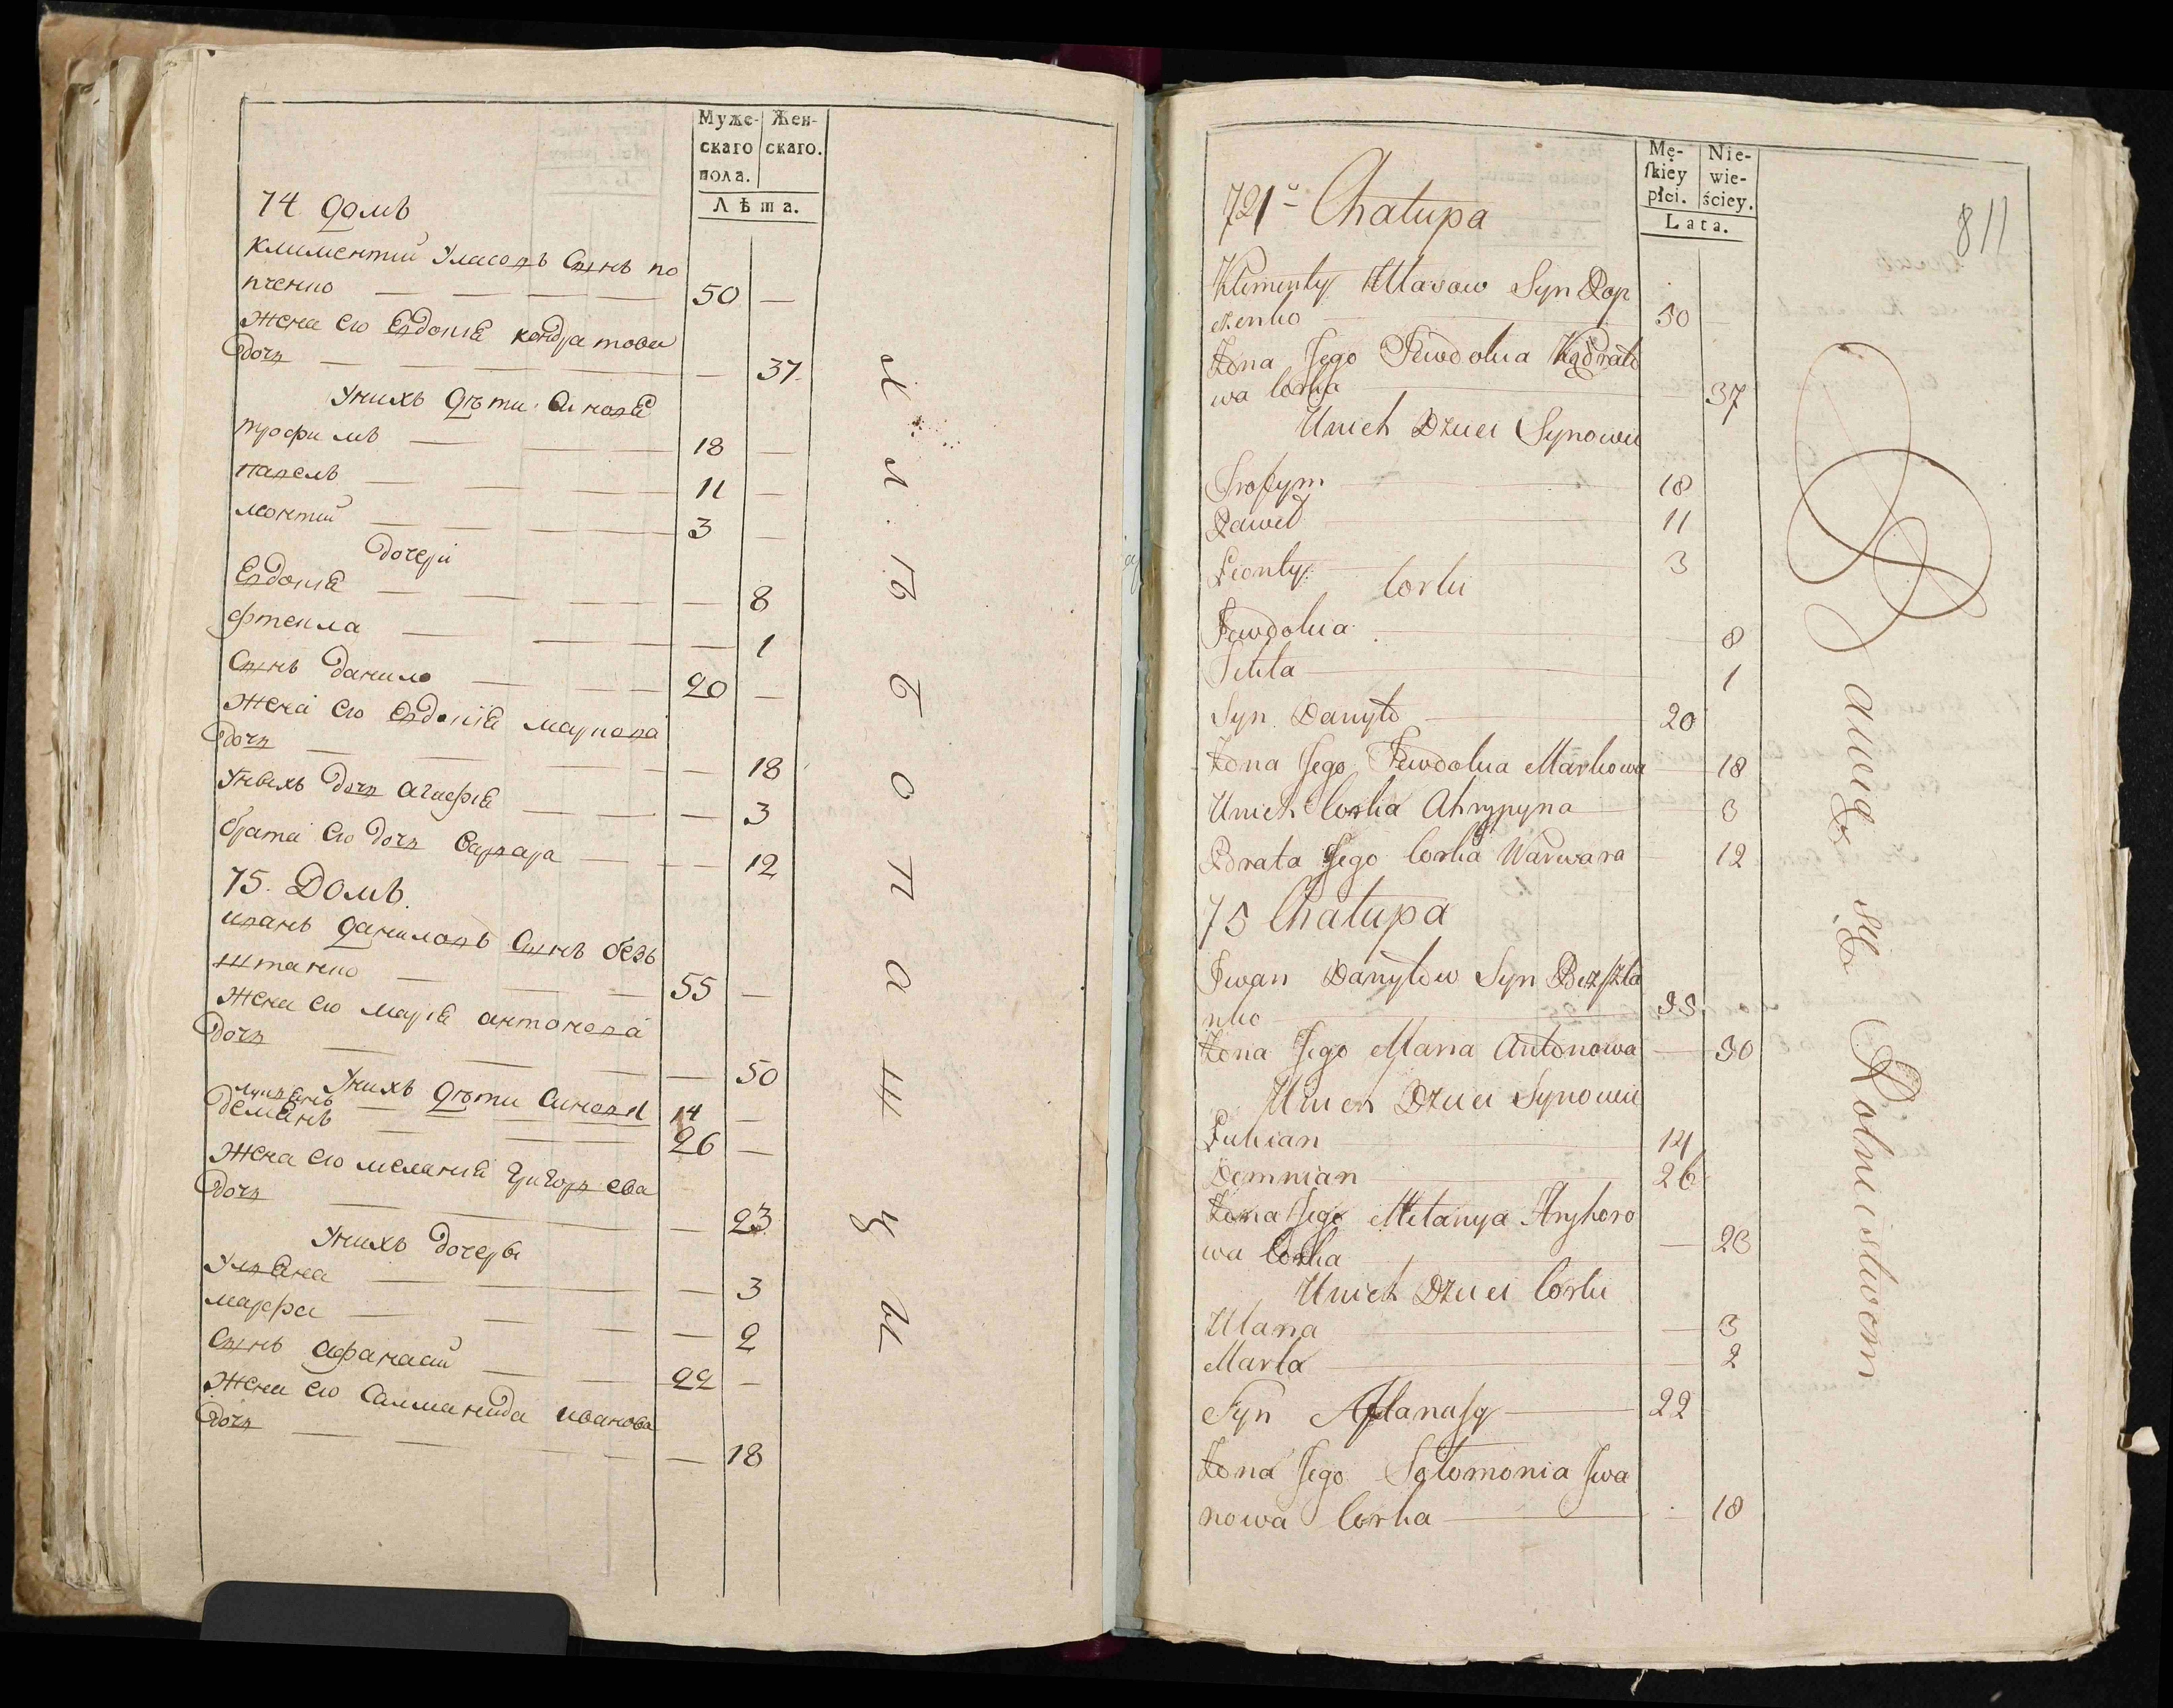 Муже-
скаго
пола.
Жен-
скаго.
Лѣта.
74 домъ
климентий Уласовъ Сынъ по
пченко 50 —
жена его Евдокія кондратова
дочь — 37
Унихъ дѣти Синовѣ
трофимъ 18 —
павелъ 11 —
леонтий 3 —
дочери
Евдокія — 8
фтекла — 1
Сынъ данило 20 —
жена его Евдокія маркова
дочь — 18
Унихъ дочь агпефія — 3
брата его дочь варвара — 12
75. Домъ.
иванъ даниловъ Сынъ безъ
штанко 55 —
жена его марія антонова
дочь — 50
Унихъ дѣти Синовя
лукіянъ 14 —
деміянъ 26 —
жена его меланія григорьева
дочь — 23
Унихъ дочерѣ
Ульяна — 3
марфа — 2
Сынъ афанасий 22 —
жена его Саламанида иванова
дочь — 18
Хлѣбопашцы
Mę-
skiey
płci.
Nie-
wie-
ściey.
Lata.
811
74 Chałupa
Klimenty Ułasow Syn Pop
czenko 50 —
Żona Jego Jewdokia Kądrato
wa Corka — 37
Unich Dzieci Synowie
Trofym 18
Paweł 11
Leonty 3
Corki
Jewdokia 8
Tekla 1
Syn Danyło 20
Żona Jego Jewdokia Markowa — 18
Unich Corka Ahrypyna 3
Brata Jego Corka Warwara 12
75 Chałupa
Iwan Danyłow Syn Bezszta
nko 55
Żona Jego Maria Antonowa — 50
Unich Dzieci Synowie
Lukian 14
Demnian 26
Żona Jego Mełanya Hryhoro
wa Corka — 23
Unich Dzieci Corki
Ulana — 3
Marta — 2
Syn Afanasy 22
Żona Jego Sołomonia Iwa
nowa Corka 18
Bawią się Rolnictwem